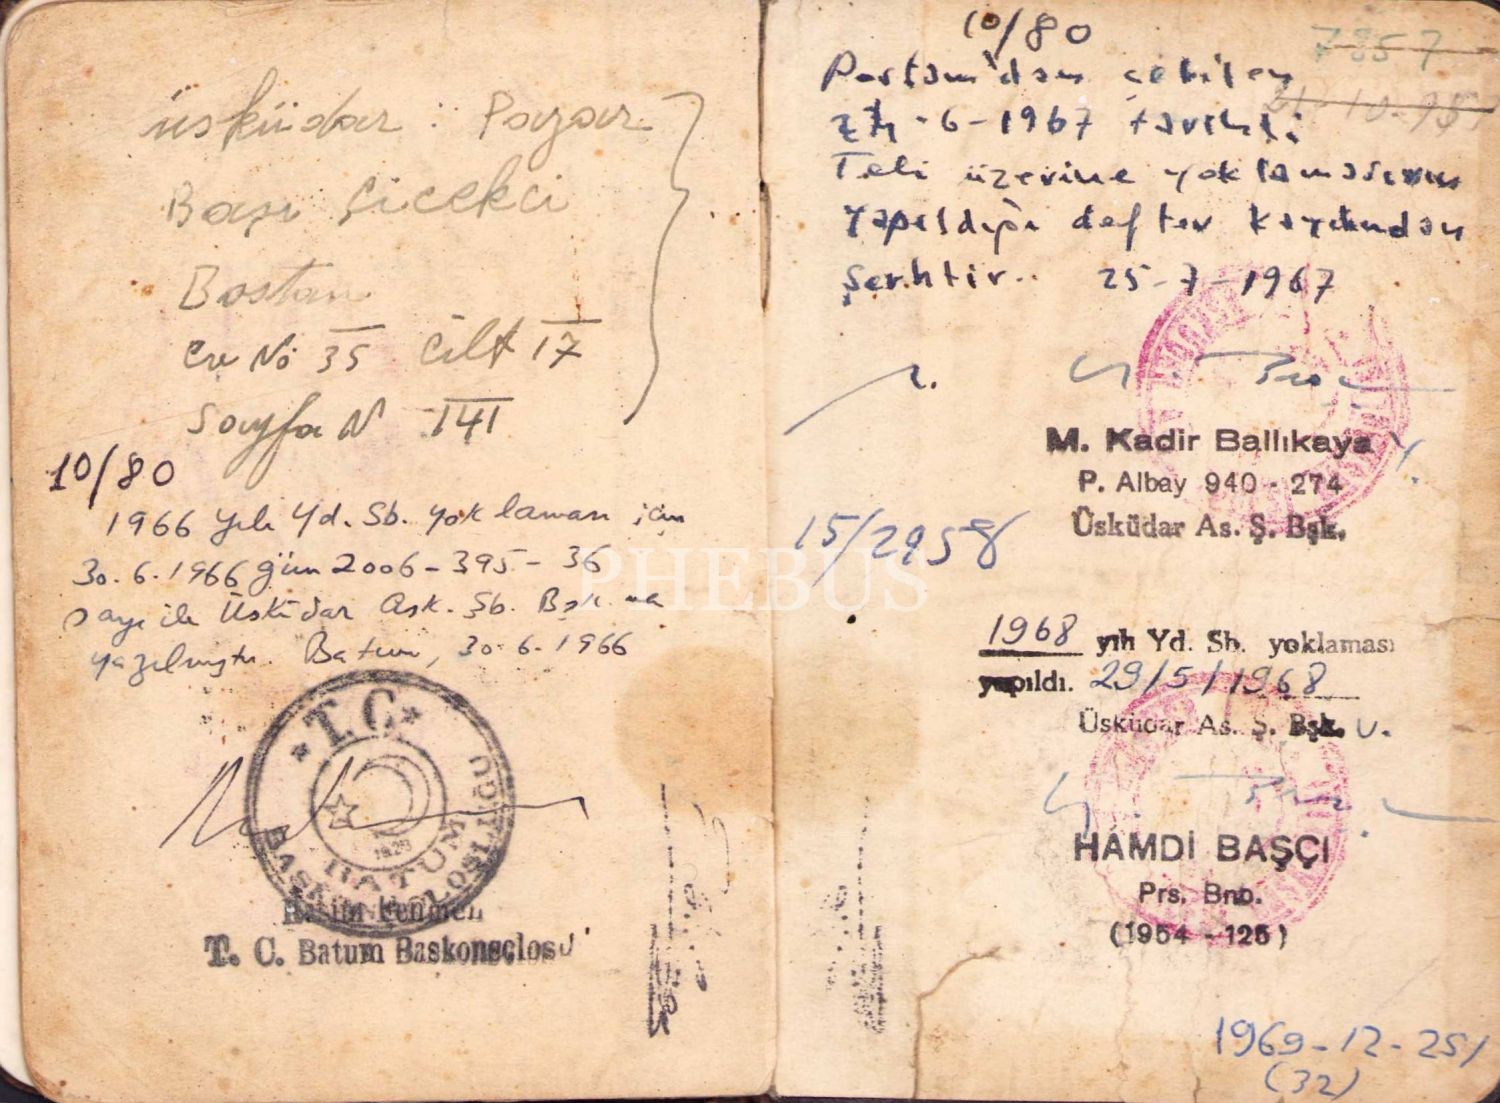 üsküdar : Pazar
Başı Çicekci
Bostan
Ev No 35 Cilt 17
Sayfa N 141
10/80
1966 yılı Yd. Sb. yoklaması için
30.6.1966 gün 2006-395-36
sayı ile Üsküdar Ask. Şb. Bşk na
yazılmıştı. Batum, 30.6.1966
★ T.C. ★
1929
BATUM
BAŞKONSOLOSLUĞU
T. C. Batum Baskonsolosu
10/80
7857
çekilen
-6-1967 tarihli
Teli üzerine yoklamasının
yapıldığı defter kaydından
Şerhtir.. 25-7-1967
M. Kadir Ballıkaya
P. Albay 940 - 274
Üsküdar As. Ş. Bşk.
15/2958
PHEBUS
1968 yılı Yd. Sb. yoklaması
yapıldı. 29/5/1968
Üsküdar As. Ş. Bşk. V.
HAMDİ BAŞÇI
Prs. Bnb.
(1954 - 125)
1969-12-251
(32)